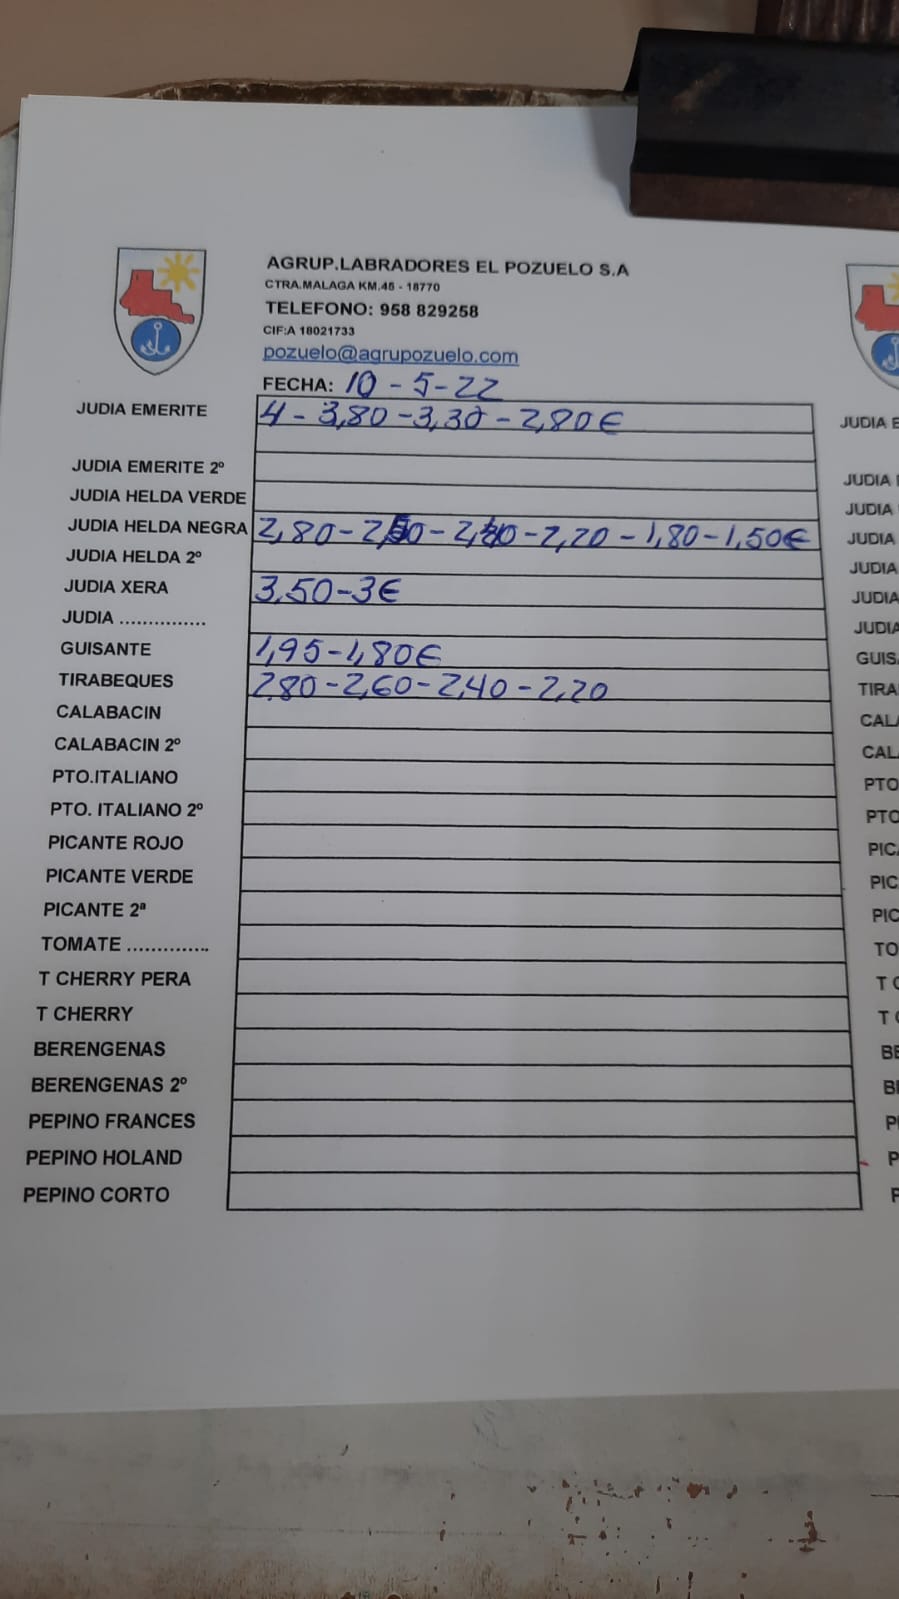 AGRUP.LABRADORES EL POZUELO S.A
CTRA.MALAGA KM.45 - 18770
TELEFONO: 958 829258
CIF:A 18021733
pozuelo@agrupozuelo.com
FECHA: 10 - 5 - 22
JUDIA EMERITE 4 - 3,80 - 3,30 - 2,80€
JUDIA EMERITE 2º
JUDIA HELDA VERDE
JUDIA HELDA NEGRA 2,80 - 2,50 - 2,40 - 2,20 - 1,80 - 1,50€
JUDIA HELDA 2º
JUDIA XERA 3,50 - 3€
JUDIA ...............
GUISANTE 1,95 - 1,80€
TIRABEQUES 2,80 - 2,60 - 2,40 - 2,20
CALABACIN
CALABACIN 2º
PTO.ITALIANO
PTO. ITALIANO 2º
PICANTE ROJO
PICANTE VERDE
PICANTE 2ª
TOMATE ..............
T CHERRY PERA
T CHERRY
BERENGENAS
BERENGENAS 2º
PEPINO FRANCES
PEPINO HOLAND
PEPINO CORTO
JUDIA E
JUDIA
JUDIA
JUDIA
JUDIA
JUDIA
JUDIA
GUIS
TIRA
CAL
CAL
PTO
PTO
PIC
PIC
PIC
TO
T C
T C
BE
BE
P
P
P